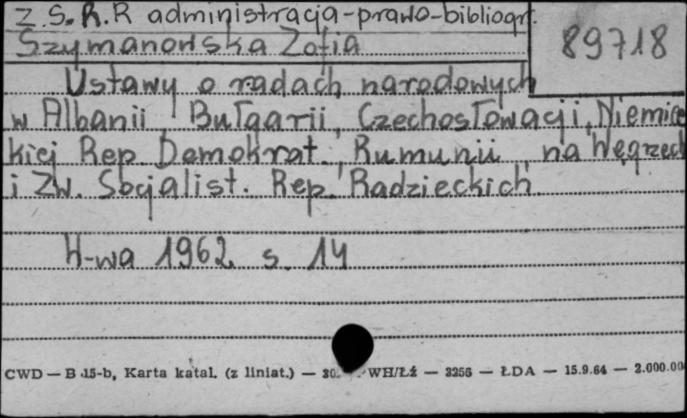 Z.S.R.R administracja-prawo-bibliogr.
89718
Szymanowska Zofia
Ustawy o radach narodowych
w Albanii, Bułgarii, Czechosłowacji, Niemiec
kiej Rep. Demokrat., Rumunii, na Węgrzech
i Zw. Socjalist. Rep. Radzieckich
W-wa 1962 s. 14
CWD — B 15-b, Karta katal. (z liniat.) — WH/Łź — 3256 — ŁDA — 15.9.64 — 2.000.00